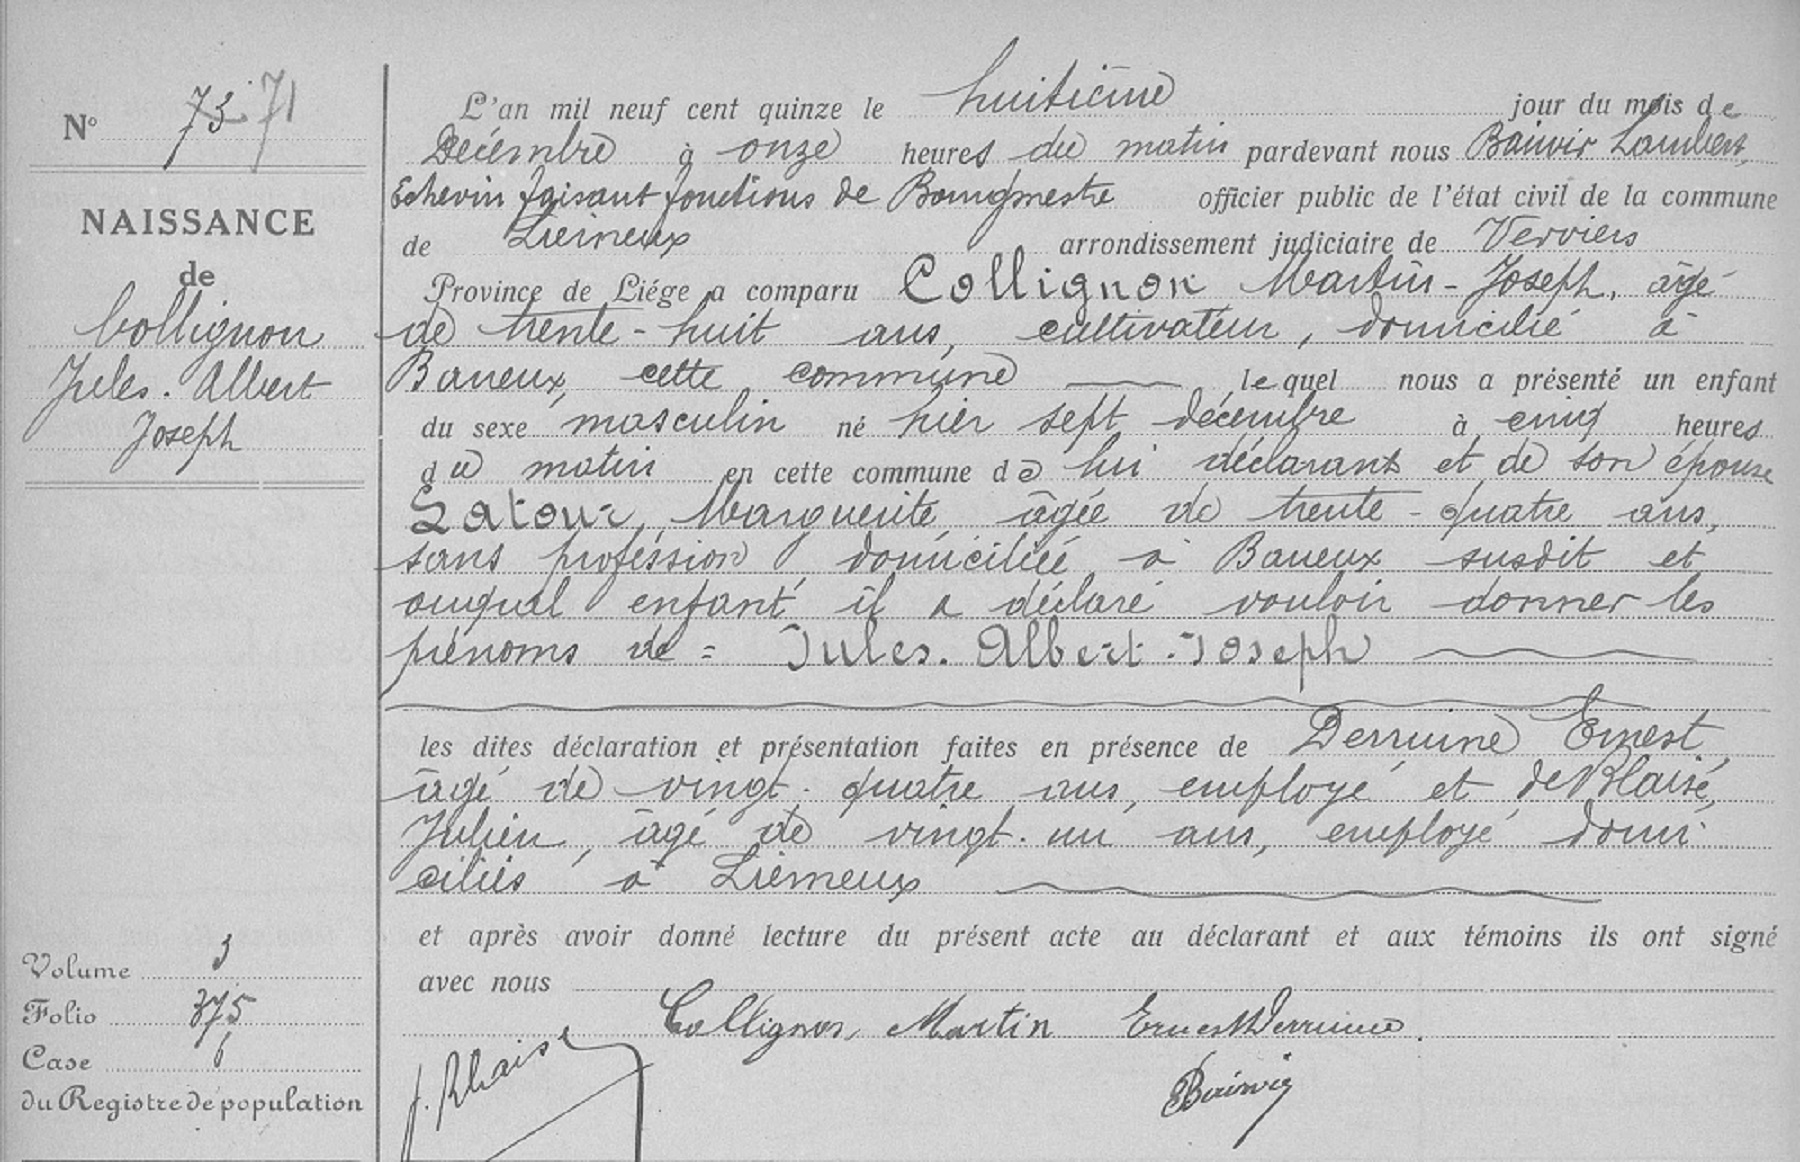 N° 73 71
NAISSANCE
de
Collignon
Jules. Albert
Joseph
Volume 3
Folio 375
Case 6
du Registre de population
L'an mil neuf cent quinze le huitième jour du mois de
Décembre à onze heures du matin pardevant nous Bairvir Lambert,
Echevin faisant fonctions de Bourgmestre officier public de l'état civil de la commune
de Lierneux arrondissement judiciaire de Verviers
Province de Liége a comparu Collignon Martin-Joseph, âgé
de trente-huit ans, cultivateur, domicilié à
Baneux, cette commune lequel nous a présenté un enfant
du sexe masculin né hier sept décembre à cinq heures
du matin en cette commune de lui déclarant et de son épouse
Latour, Marguerite, âgée de trente-quatre ans,
sans profession, domiciliée à Baneux susdit et
auquel enfant il a déclaré vouloir donner les
prénoms de = Jules. Albert-Joseph
les dites déclaration et présentation faites en présence de Derruine Ernest,
âgé de vingt-quatre ans, employé et de Blaise,
Julien, âgé de vingt-un ans, employé domi
ciliés à Lierneux
et après avoir donné lecture du présent acte au déclarant et aux témoins ils ont signé
avec nous
Collignon, Martin Ernest Derruine.
J. Blaise